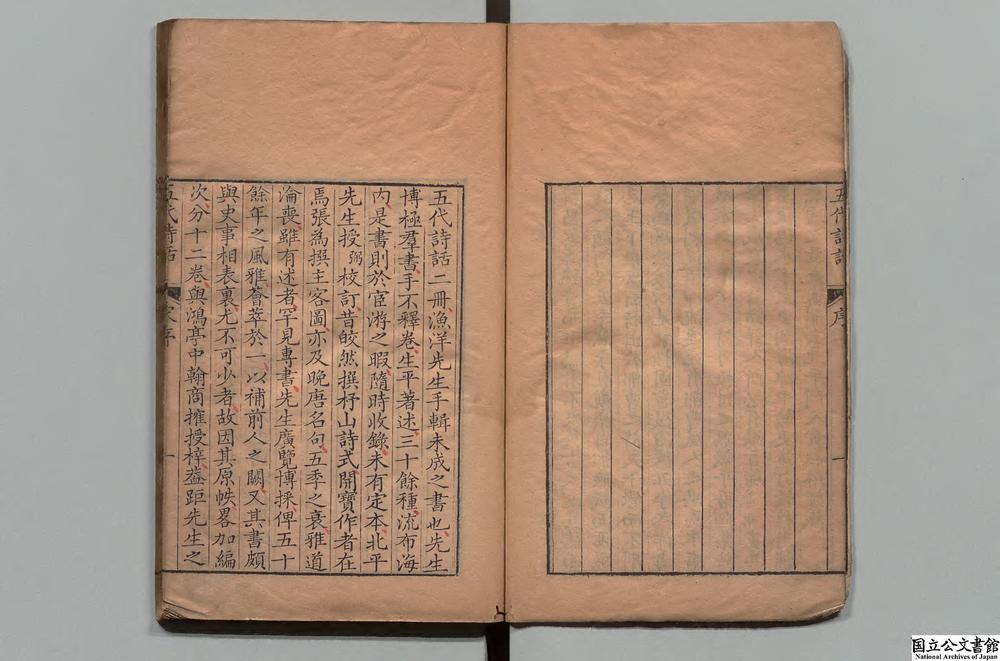 五代詩話
序
一
五代詩話二冊漁洋先生手輯未成之書也先生
博極羣書手不釋卷生平著述三十餘種流布海
内是書則於宦游之暇隨時收錄未有定本北平
先生授弼校訂昔皎然撰杼山詩式開寶作者在
焉張為撰主客圖亦及晚唐名句五季之衰雅道
淪喪雖有述者罕見專書先生廣覽博採俾五十
餘年之風雅薈萃於一以補前人之闕又其書頗
與史事相表裏尤不可少者故因其原帙畧加編
次分十二卷與鴻亭中翰商搉授梓葢距先生之
五代詩話
序
一
国立公文書館
National Archives of Japan